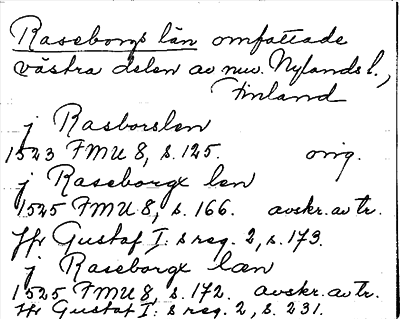 Raseborgs län omfattade
västra delen av nuv. Nylands l.,
Finland
j Rasborslen
1523 FMU 8, s. 125. orig.
j Raseborgx len
1525 FMU 8, s. 166. avskr. av tr.
Jfr Gustaf I:s reg. 2, s. 173.
j Raseborgx læn
1525 FMU 8, s. 172. avskr. av tr.
Jfr Gustaf I:s reg. 2, s. 231.